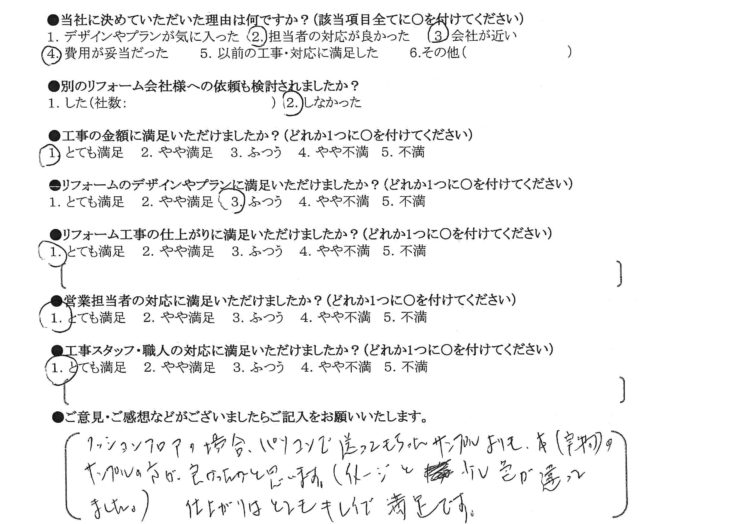 ●当社に決めていただいた理由は何ですか？（該当項目全てに〇を付けてください）
1. デザインやプランが気に入った 2. 担当者の対応が良かった 3 会社が近い
4. 費用が妥当だった 5. 以前の工事・対応に満足した 6.その他( )
●別のリフォーム会社様への依頼も検討されましたか？
1. した(社数: ) 2. しなかった
●工事の金額に満足いただけましたか？（どれか1つに〇を付けてください）
1. とても満足 2. やや満足 3. ふつう 4. やや不満 5. 不満
●リフォームのデザインやプランに満足いただけましたか？（どれか1つに〇を付けてください）
1. とても満足 2. やや満足 3. ふつう 4. やや不満 5. 不満
●リフォーム工事の仕上がりに満足いただけましたか？（どれか1つに〇を付けてください）
1. とても満足 2. やや満足 3. ふつう 4. やや不満 5. 不満
●営業担当者の対応に満足いただけましたか？（どれか1つに〇を付けてください）
1. とても満足 2. やや満足 3. ふつう 4. やや不満 5. 不満
●工事スタッフ・職人の対応に満足いただけましたか？（どれか1つに〇を付けてください）
1. とても満足 2. やや満足 3. ふつう 4. やや不満 5. 不満
●ご意見・ご感想などがございましたらご記入をお願いいたします。
クッションフロアの場合、パソコンで送ってもらったサンプルよりも、本(実物)の
サンプルの方が、良かったかと思います。(イメージと 少し色が違って
ました。) 仕上がりはとてもキレイで満足です。